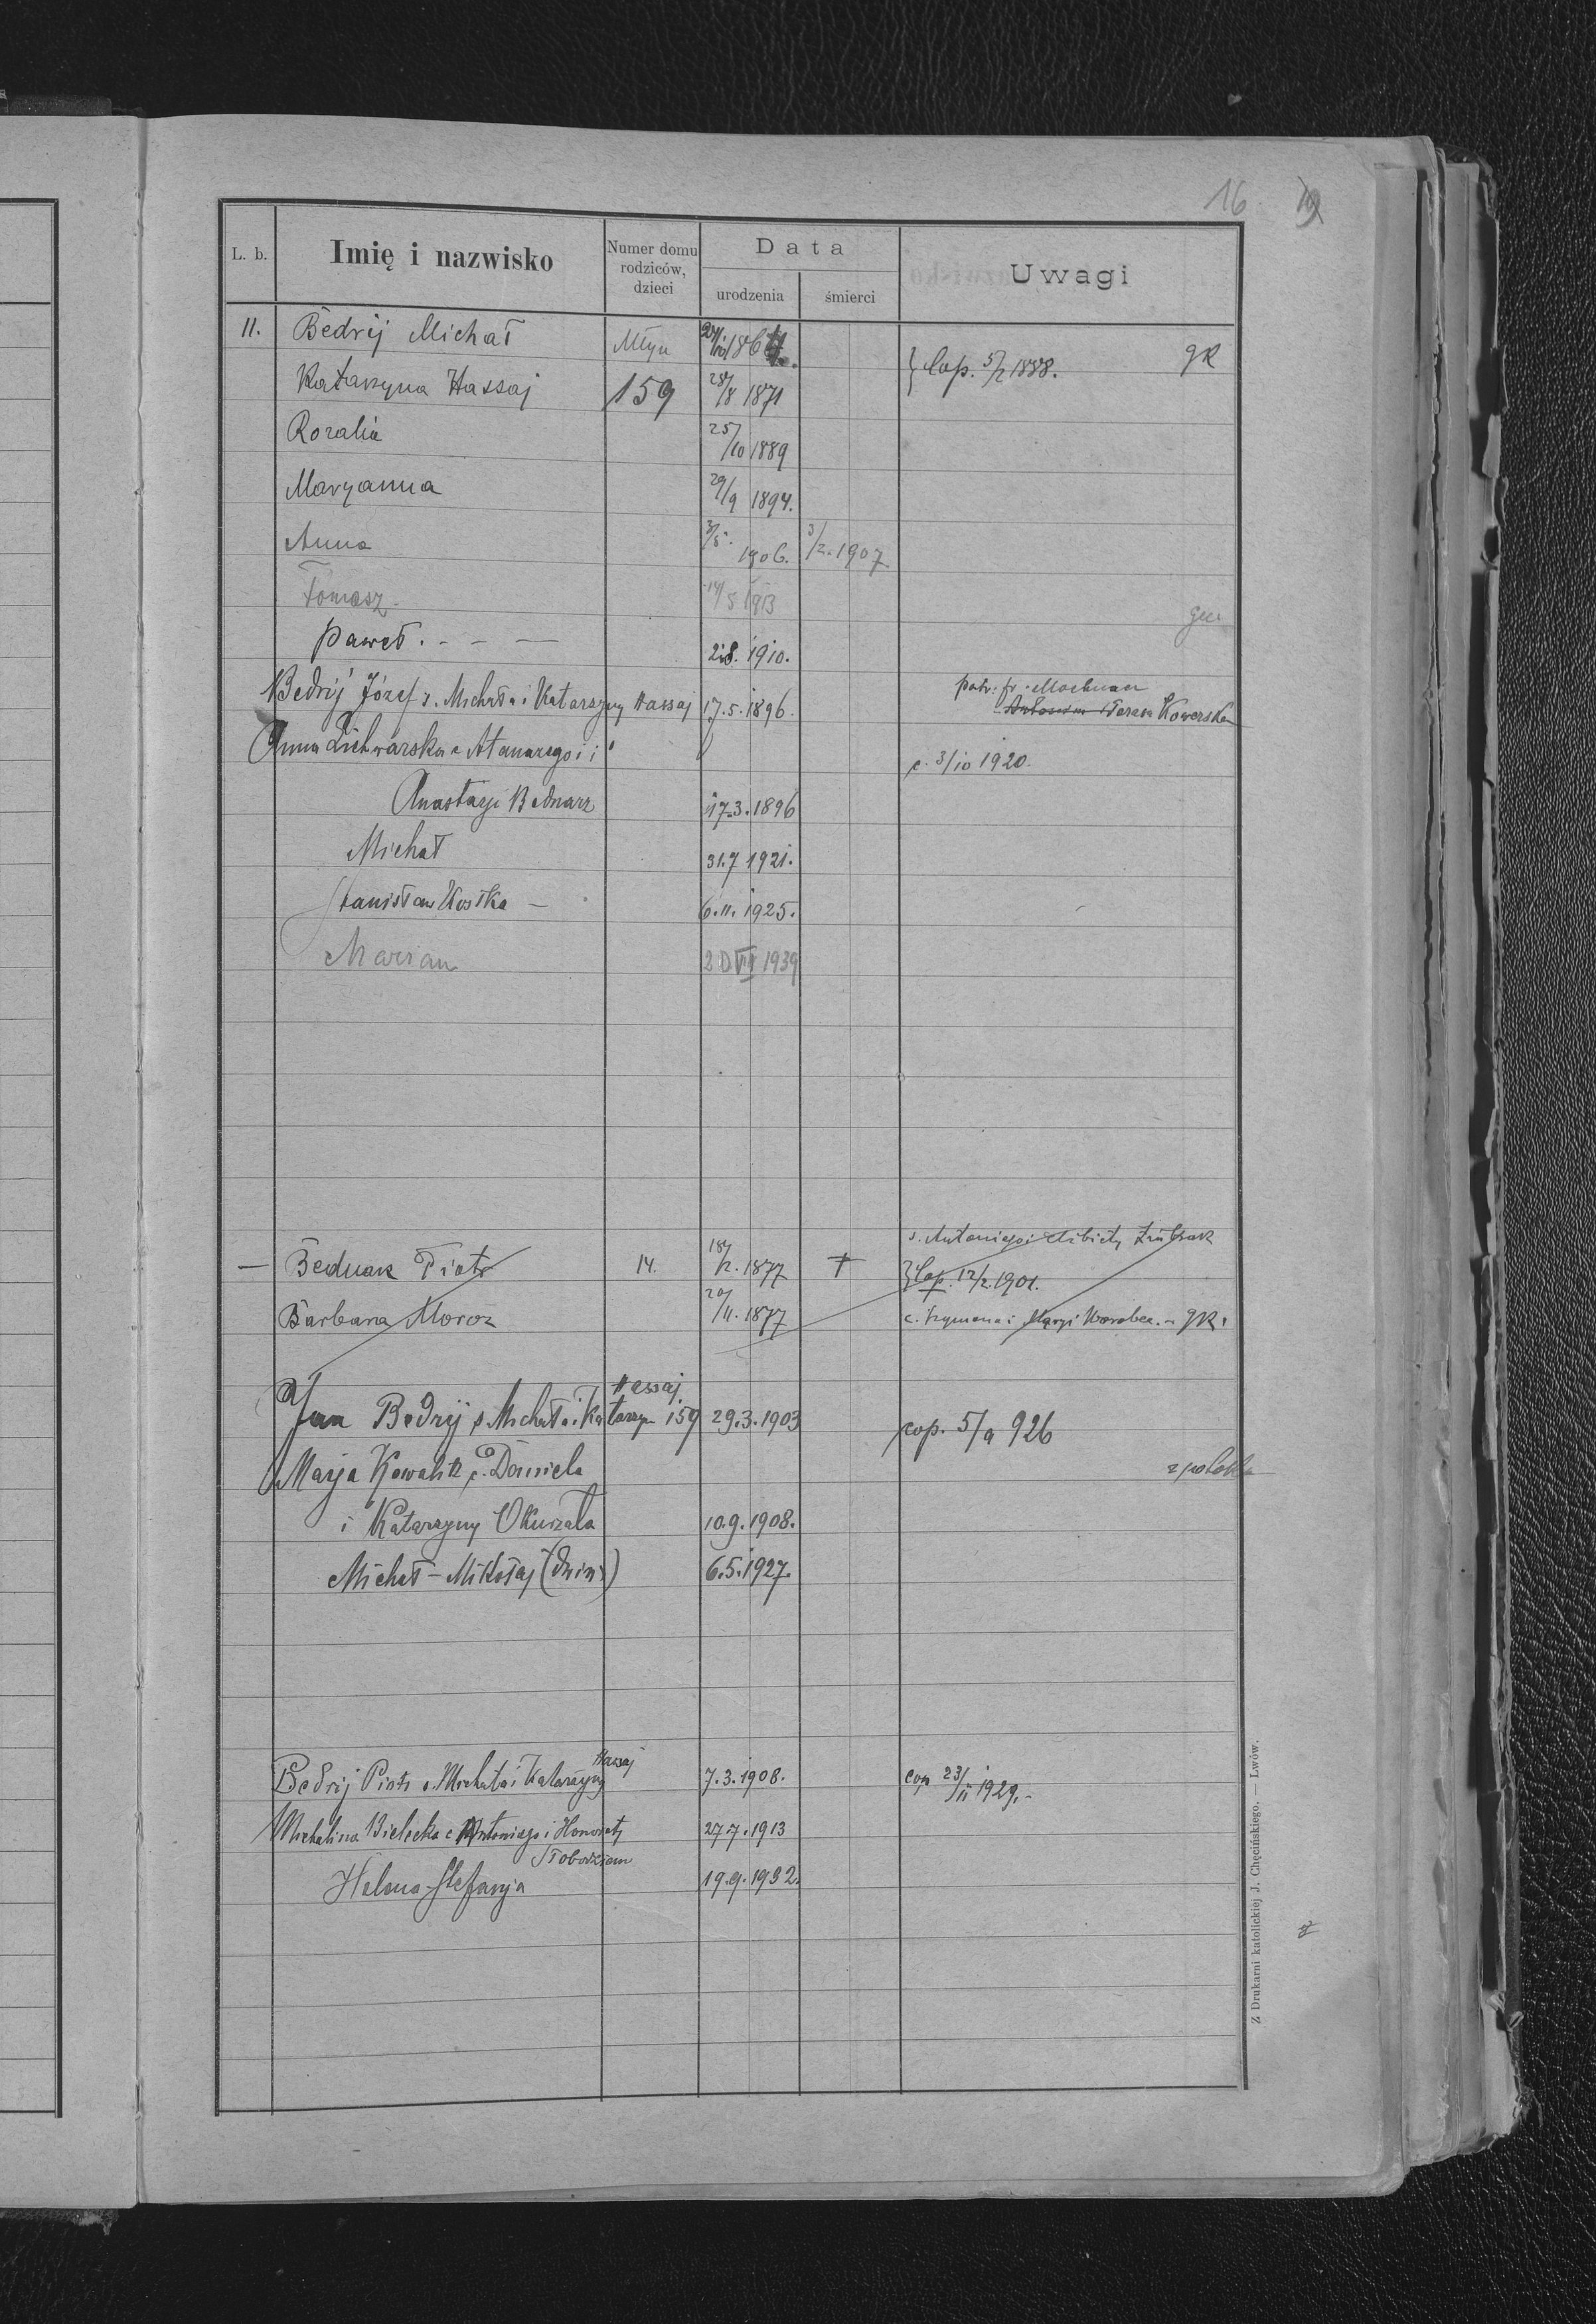 16
L. b. Imię i nazwisko Numer domu rodziców, dzieci Data urodzenia śmierci Uwagi
11. Bedrij Michał Młyn { Cop. 5/2 1888. gR
Katarzyna Hassaj 159 28/8 1871
Rozalia 25/10 1889
Maryanna 29/9 1894.
Anna 3/5. 1906. 3/2. 1907
Tomasz 14/5 1913
Paweł . - - — 2.8. 1910.
Bedrij Józef s. Michała i Katarzyny Hassaj 17.5.1896.
Teresa Kowerska
Anna Lichwarska c Atanazego i c. 3/10 1920.
Anastazji Bednarz 17.3.1896
Michał 31.7 1921.
Stanisław Kostka — 6.11.1925.
Marian 20 VII 1939
s. Antoniego i Elżbiety
— Bednarz Piotr 14. 18/2. 1877 † } Cop. 12/2. 1901.
Barbara Moroz 20/11. 1877 c. Szymona i Maryi Worobec. - gR.
Hassaj
Jan Bedrij s Michała i Katarzyn 159 29.3.1903 cop. 5/9 926
Marja Kowalik c. Daniela
i Katarzyny 10.9.1908.
Michał - Mikołaj 6.5.1927.
Hassaj
Bedrij Piotr s. Michała i Katarzyny 7.3.1908. cop 23/11 1929.-
Michalina Bielecka c Antoniego i Honoraty 27 7.1913
Słobodzian
Helena-Stefanja 19.9.1932.
Z Drukarni katolickiej J. Chęcińskiego. — Lwów.